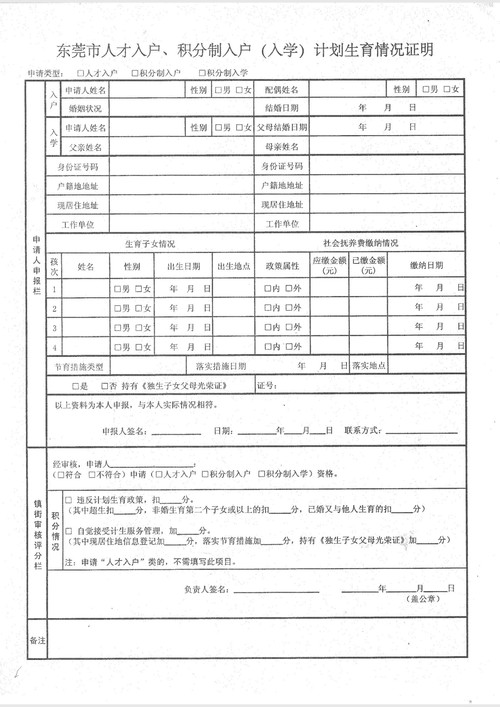 东莞市人才入户、积分制入户（入学）计划生育情况证明
申请类型： □人才入户 □积分制入户 □积分制入学
申请人申报栏
入户 申请人姓名 性别 □男 □女 配偶姓名 性别 □男 □女
婚姻状况 结婚日期 年 月 日
入学 申请人姓名 性别 □男 □女 父母结婚日期 年 月 日
父亲姓名 母亲姓名
身份证号码 身份证号码
户籍地地址 户籍地地址
现居住地址 现居住地址
工作单位 工作单位
生育子女情况 社会抚养费缴纳情况
孩次 姓名 性别 出生日期 出生地点 政策属性 应缴金额（元） 已缴金额（元） 缴纳日期
1 □男 □女 年 月 日 □内 □外 年 月 日
2 □男 □女 年 月 日 □内 □外 年 月 日
3 □男 □女 年 月 日 □内 □外 年 月 日
4 □男 □女 年 月 日 □内 □外 年 月 日
节育措施类型 落实措施日期 年 月 日 落实地点
□是 □否 持有《独生子女父母光荣证》 证号：
以上资料为本人申报，与本人实际情况相符。
申报人签名：______ 日期：____年____月____日 联系方式：______
镇街审核评分栏
经审核，申请人______：
（□符合 □不符合）申请（□人才入户 □积分制入户 □积分制入学）资格。
积分情况
□ 违反计划生育政策，扣____分。
（其中超生扣____分，非婚生育第二个子女或以上的扣____分，已婚又与他人生育的扣____分）
□ 自觉接受计生服务管理，加____分。
（其中现居住地信息登记加____分，落实节育措施加____分，持有《独生子女父母光荣证》加____分）
注：申请“人才入户”类的，不需填写此项目。
负责人签名：______ ____年____月____日
（盖公章）
备注